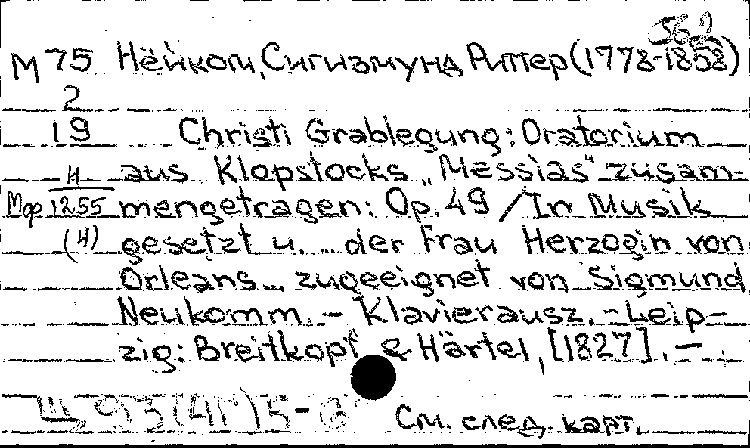 М 75 Нейком, Сигизмунд Риттер (1778-1858)
2
19 Christi Grablegung: Oratorium
Н aus Klopstocks „Messias“ zusam-
Мф 1255 mengetragen: Op. 49 / In Musik
(Н) gesetzt u. ... der Frau Herzogin von
Orleans... zugeeignet von Sigmund
Neukomm. - Klavierausz. - Leip-
zig: Breitkopf & Härtel, [1827]. -
См. след. карт.